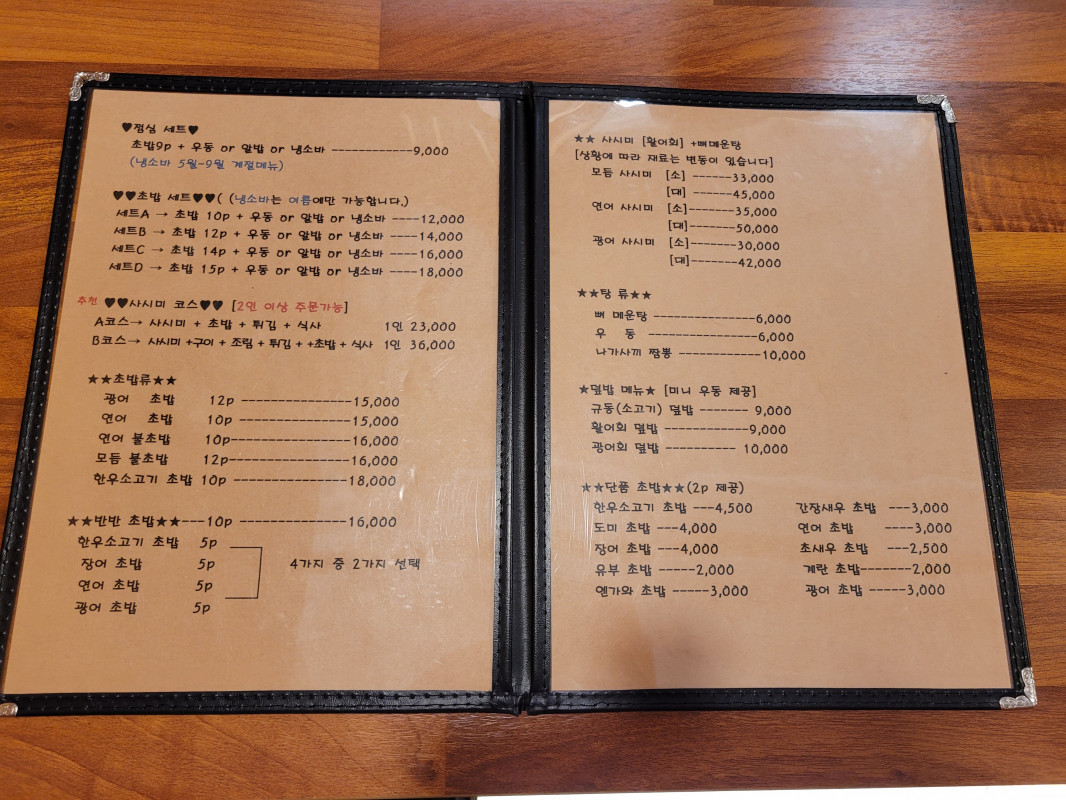 ♥점심 세트♥
초밥9p + 우동 or 알밥 or 냉소바 -------------9,000
(냉소바 5월-9월 계절메뉴)
♥♥초밥 세트♥♥( (냉소바는 여름에만 가능합니다.)
세트A → 초밥 10p + 우동 or 알밥 or 냉소바 ----12,000
세트B → 초밥 12p + 우동 or 알밥 or 냉소바 ----14,000
세트C → 초밥 14p + 우동 or 알밥 or 냉소바 ----16,000
세트D → 초밥 15p + 우동 or 알밥 or 냉소바 ----18,000
추천 ♥♥사시미 코스♥♥ [2인 이상 주문가능]
A코스→ 사시미 + 초밥 + 튀김 + 식사 1인 23,000
B코스→ 사시미 +구이 + 조림 + 튀김 + +초밥 + 식사 1인 36,000
★★초밥류★★
광어 초밥 12p ----------------15,000
연어 초밥 10p ----------------15,000
연어 불초밥 10p-----------------16,000
모듬 불초밥 12p-----------------16,000
한우소고기 초밥 10p ----------------18,000
★★반반 초밥★★---10p ---------------16,000
한우소고기 초밥 5p
장어 초밥 5p 4가지 중 2가지 선택
연어 초밥 5p
광어 초밥 5p
★★ 사시미 [활어회] +뼈매운탕
[상황에 따라 재료는 변동이 있습니다]
모듬 사시미 [소] ------33,000
[대] ------45,000
연어 사시미 [소]-------35,000
[대]-------50,000
광어 사시미 [소]------30,000
[대]-------42,000
★★탕 류★★
뼈 매운탕 ----------------6,000
우 동 ----------------6,000
나가사끼 짬뽕 -------------10,000
★덮밥 메뉴★ [미니 우동 제공]
규동(소고기) 덮밥 -------- 9,000
활어회 덮밥 -------------9,000
광어회 덮밥 ----------- 10,000
★★단품 초밥★★(2p 제공)
한우소고기 초밥 ---4,500 간장새우 초밥 ---3,000
도미 초밥 ---4,000 연어 초밥 ----3,000
장어 초밥 ---4,000 초새우 초밥 ---2,500
유부 초밥 -----2,000 계란 초밥--------2,000
엔가와 초밥 -----3,000 광어 초밥 -----3,000